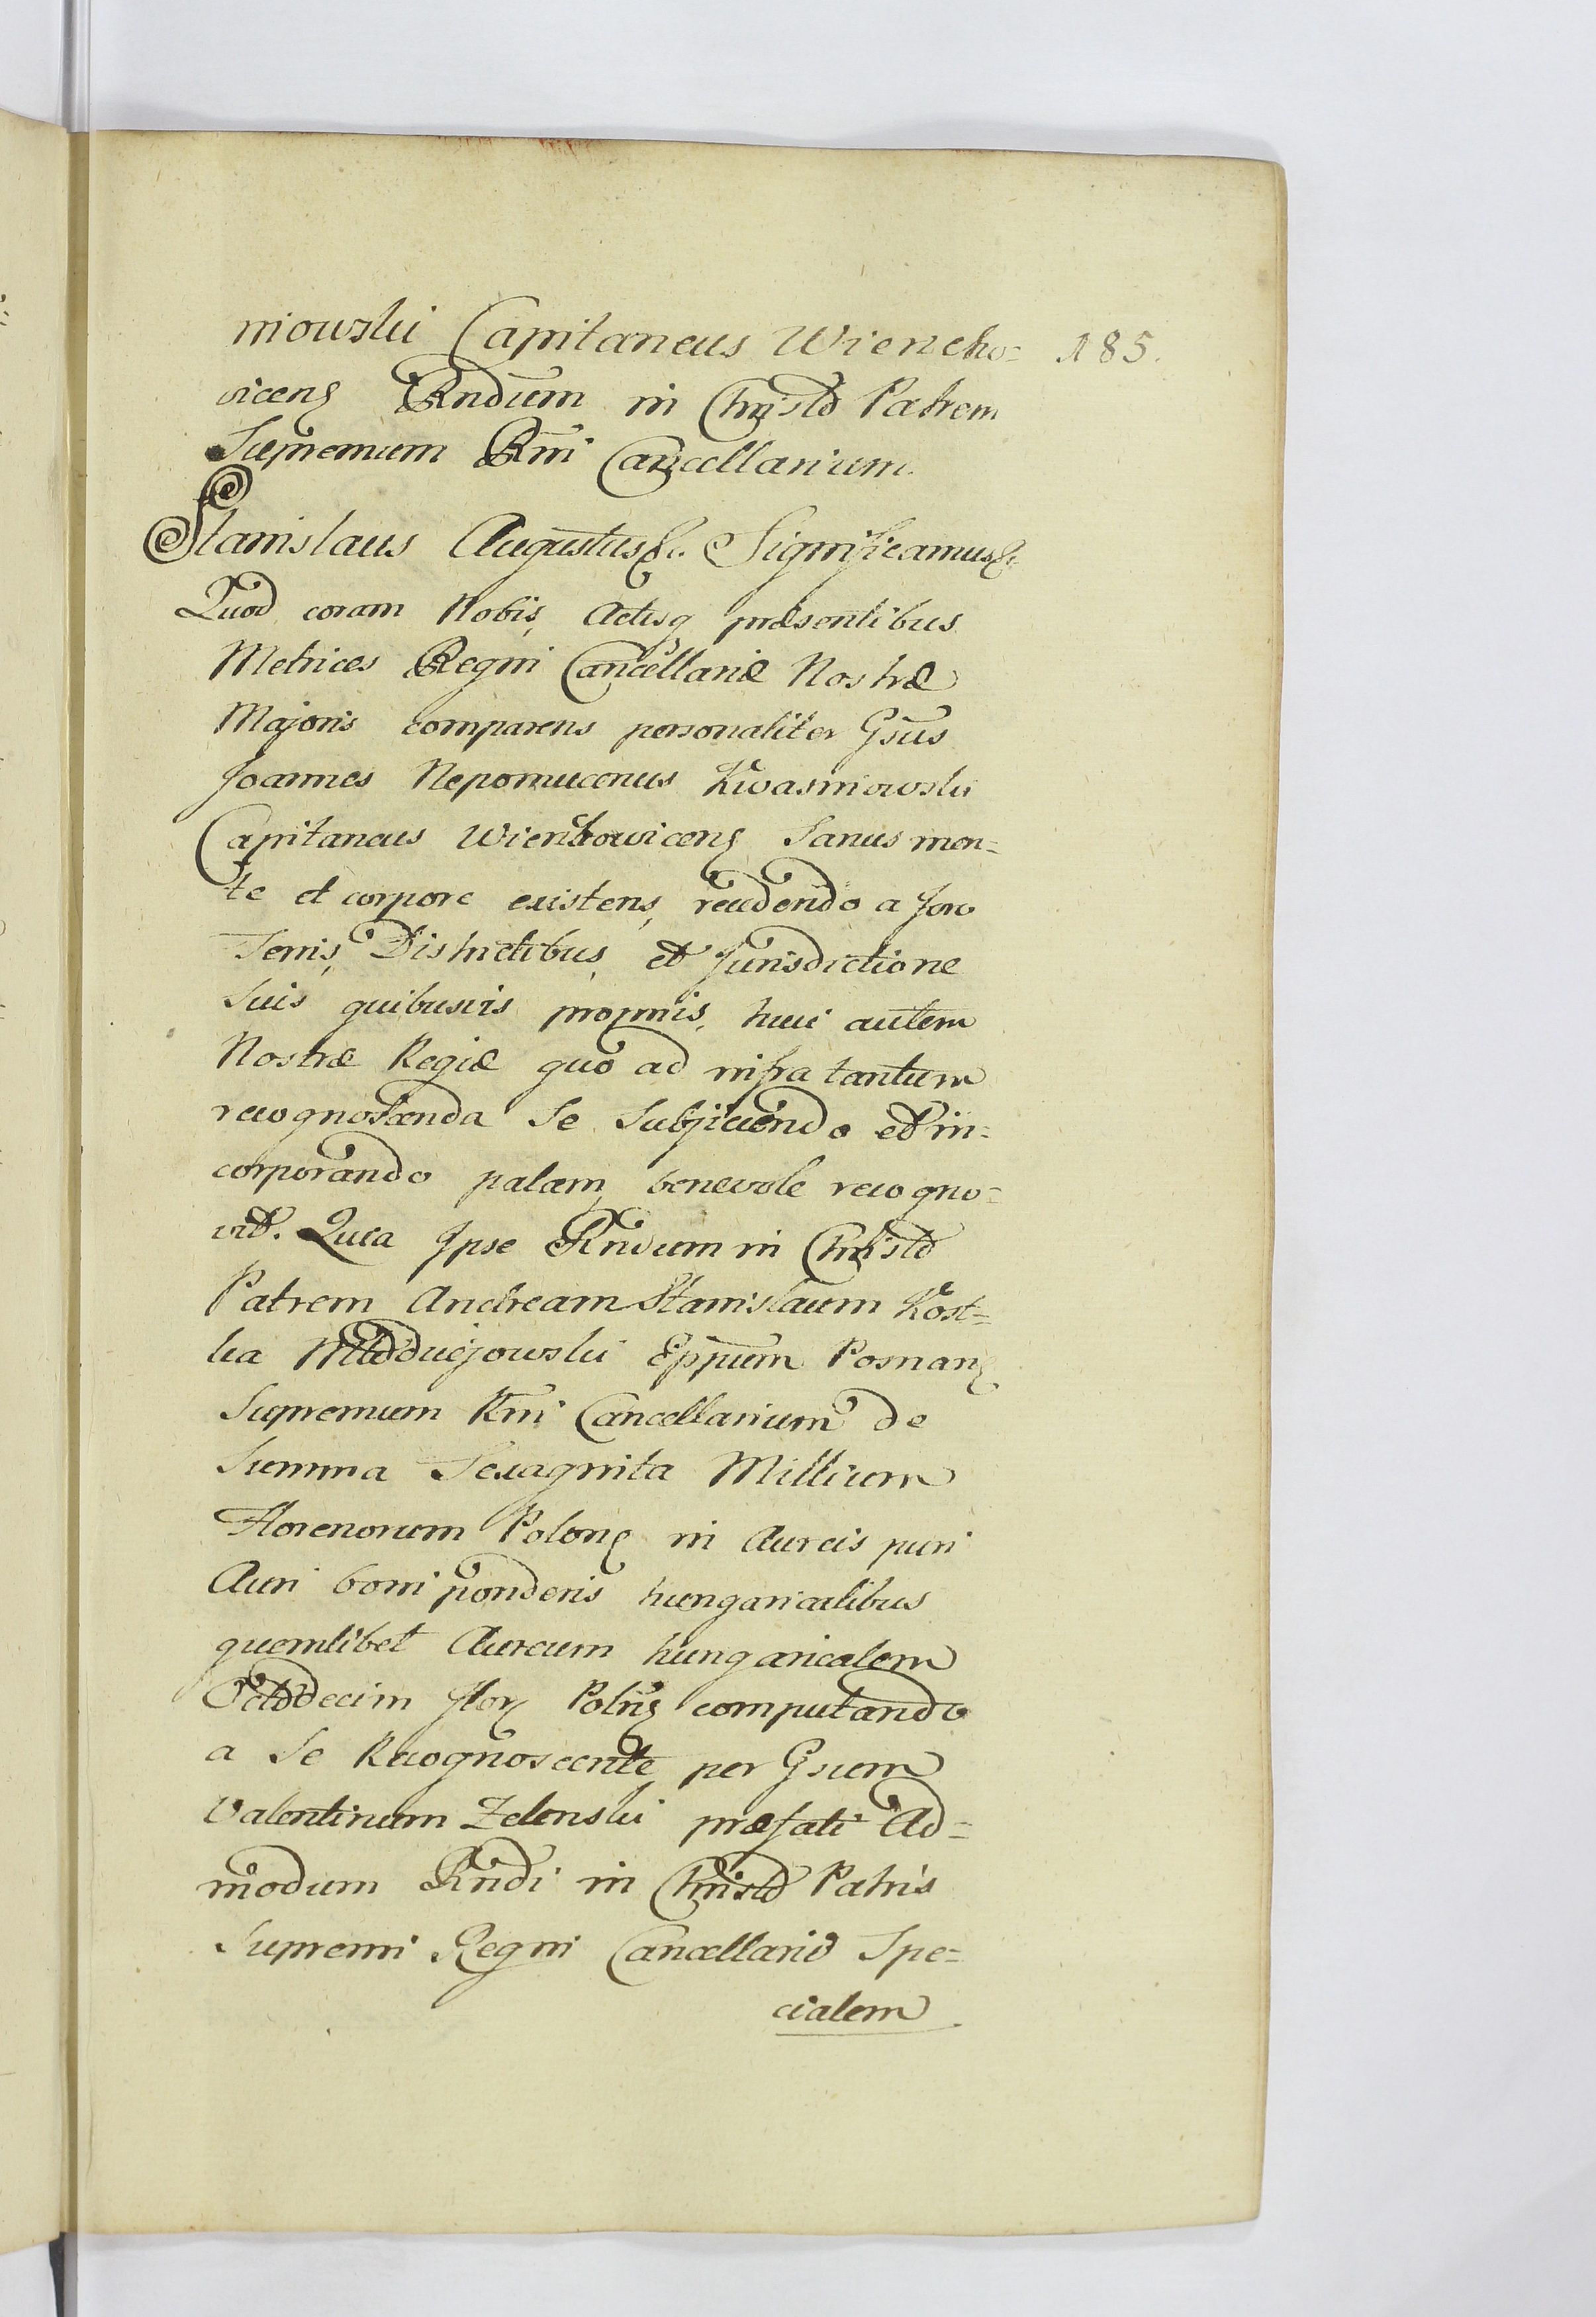 niowski Capitaneus Wiencho=
185.
vicens Rndum in Christo Patrem
Supremum Rni Cancellarium.
Stanislaus Augustus &c. Significamus &c.
Quod coram Nobis, Actisq præsentibus
Metrices Regni Cancellariæ Nostræ
Majoris comparens personaliter Gsus
Joannes Nepomucenus Kwasniowski
Capitaneus Wienchowicens Sanus men=
te et corpore existens, recedendo a foro
Terris, Districtibus, et Jurisdictione
Suis quibusvis proprijs, huic autem
Nostræ Regiæ quo ad infra tantum
recognoscenda Se Subjiciendo et in=
corporando palam, benevole recogno=
vit. Quia Ipse Rndum in Christo
Patrem Andream Stanislaum Kost=
ka Młodziejowski Eppum Posnans
Supremum Rni Cancellarium de
Summa Sexaginta Millium
Florenorum Polon in Aureis puri
Auri boni ponderis hungaricalibus
quemlibet Aureum hungaricalem
Octodecim flor Polns computando
a Se Recognoscente per Gsum
Valentinum Zelenski præfati Ad=
modum Rndi in Christo Patris
Supremi Regni Cancellarii Spe=
cialem